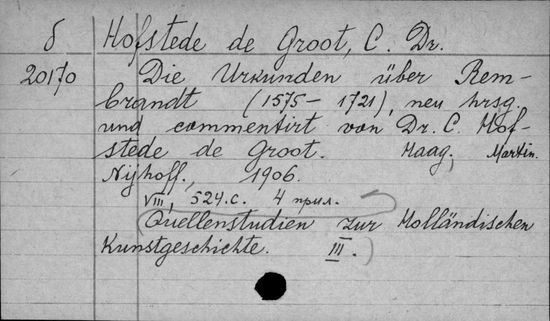 δ Hofstede de Groot, C. Dr.
20170 Die Urkunden über Rem-
brandt (1575 - 1721), neu hrsg.
und commentirt von Dr. C. Hof-
stede de Groot. Haag, Martin.
Nijhoff., 1906.
VIII, 524.с. 4 прил.
(Quellenstudien zur Holländischen
Kunstgeschichte. III.)